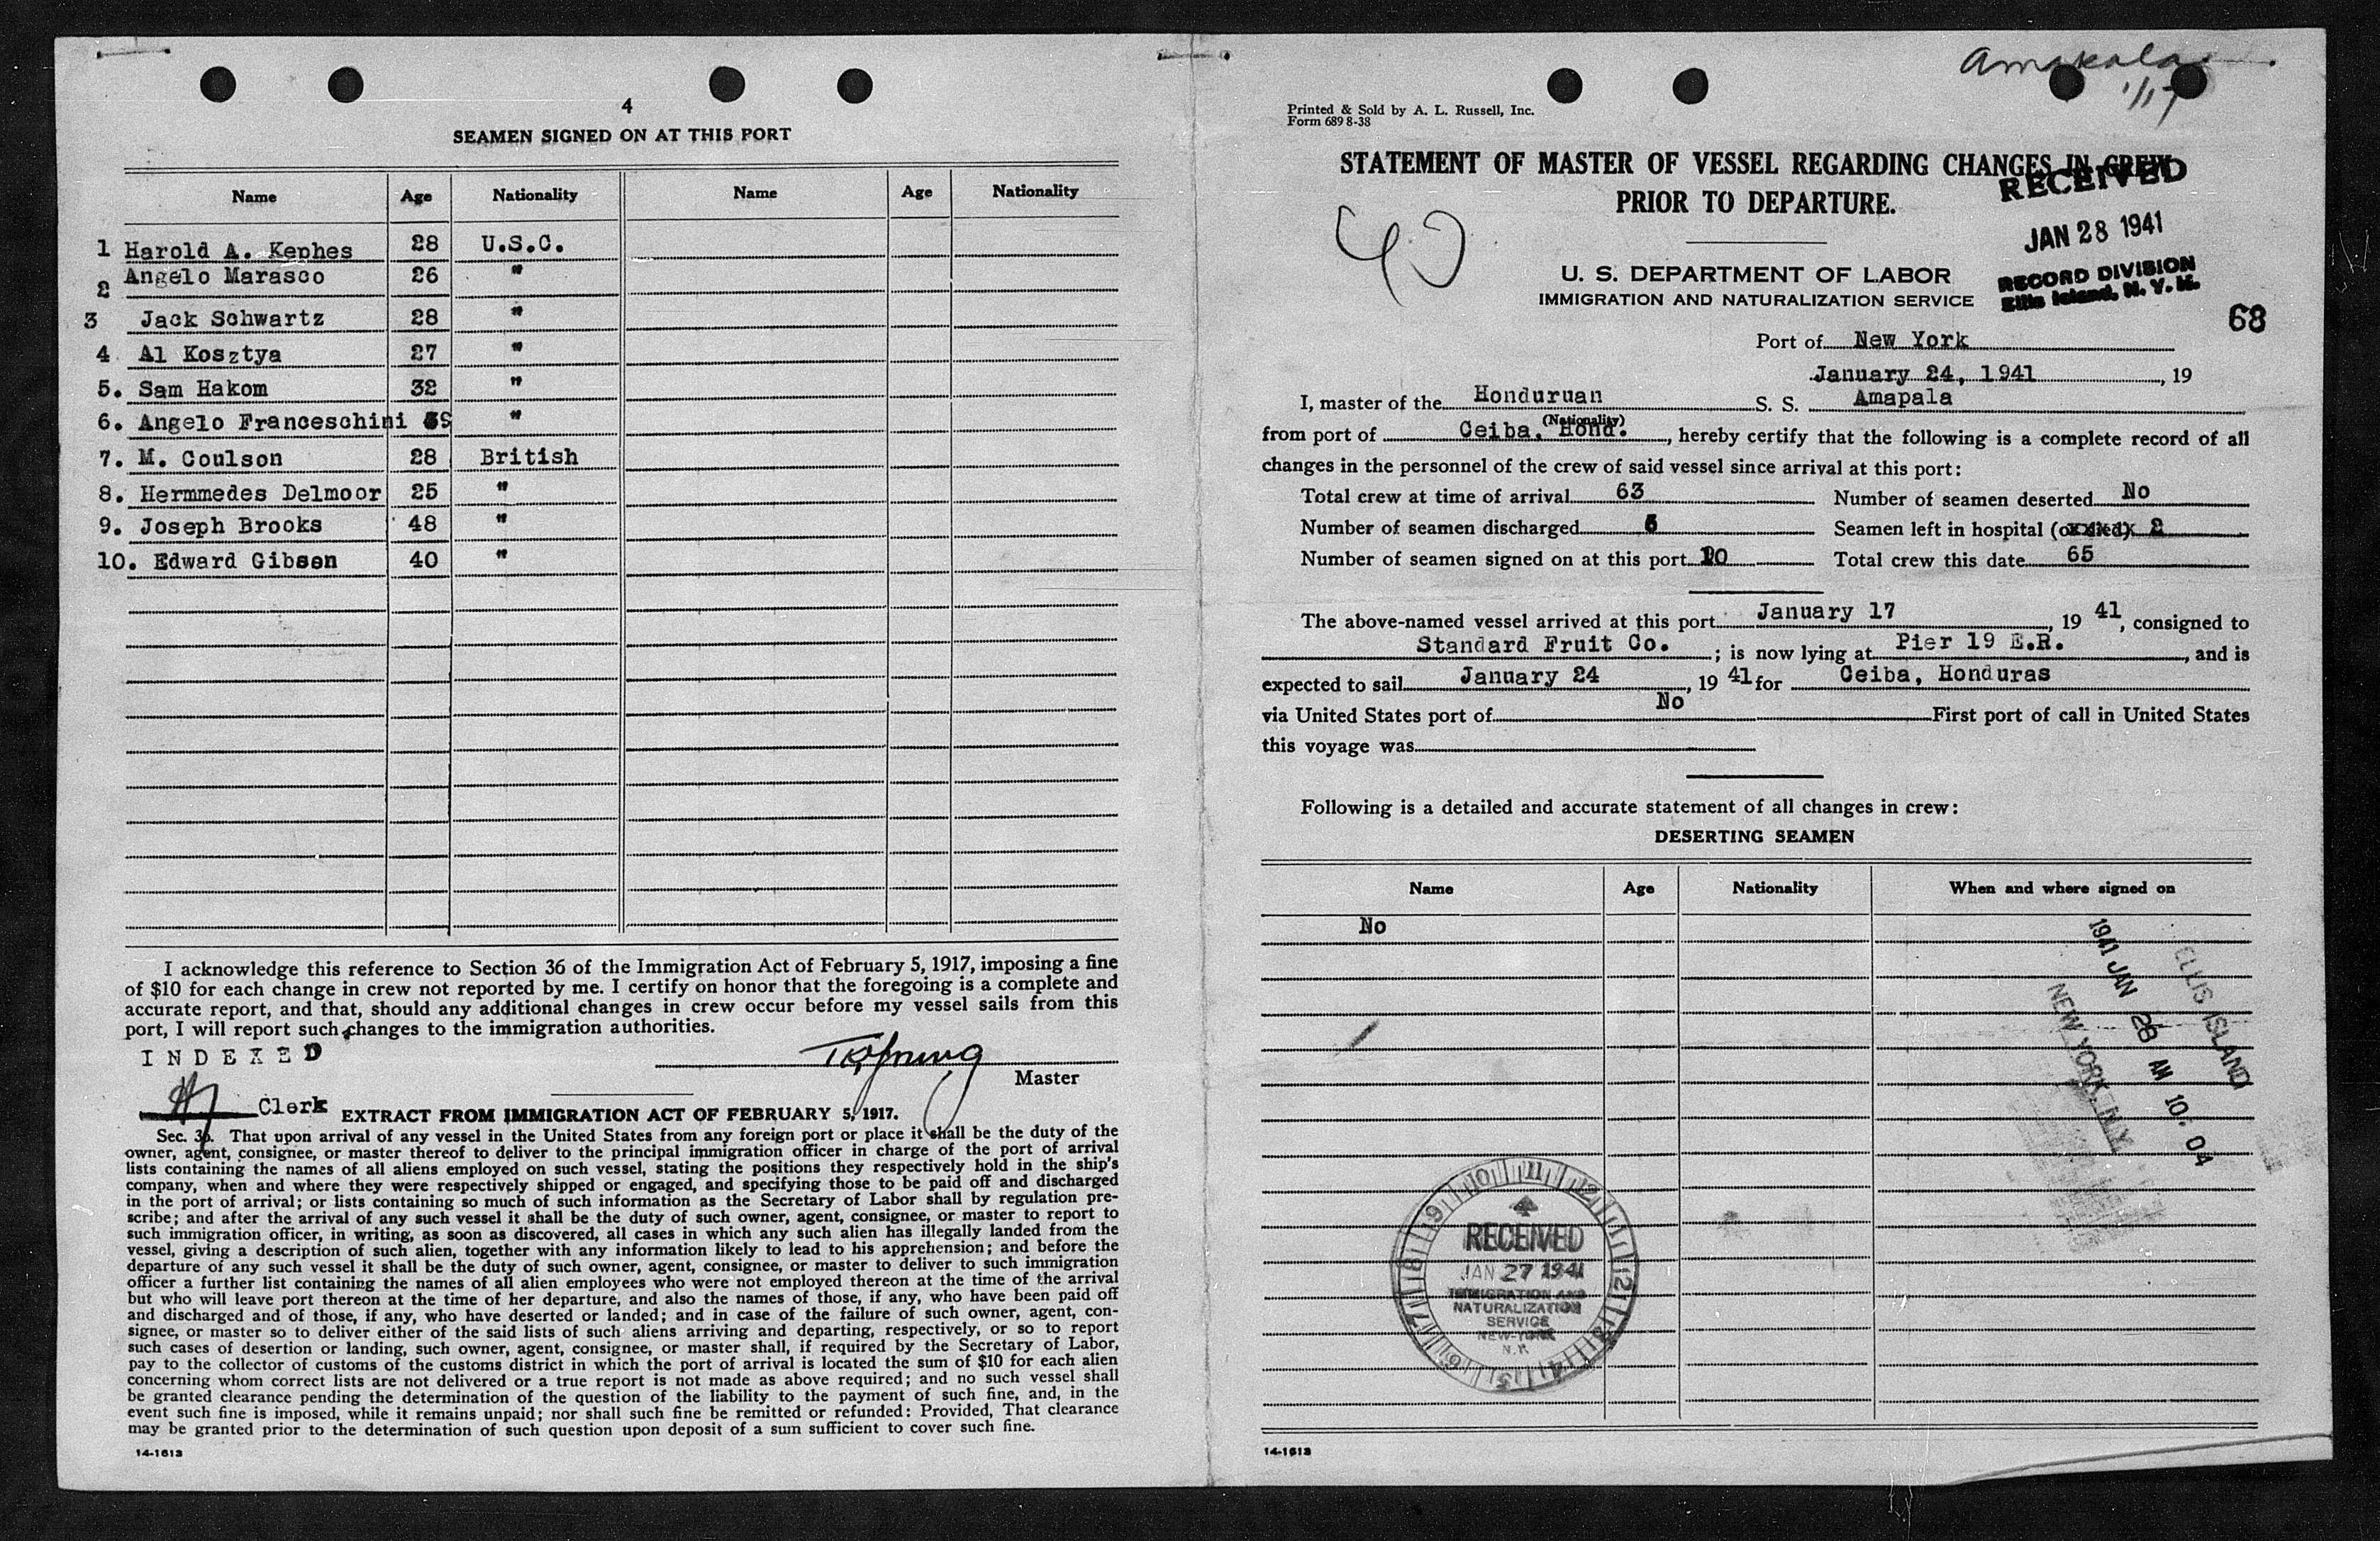 4
SEAMEN SIGNED ON AT THIS PORT
Name Age Nationality Name Age Nationality
1 Harold A. Kephes 28 U.S.C.
2 Angelo Marasco 26 "
3 Jack Schwartz 28 "
4. Al Kosztya 27 "
5. Sam Hakom 32 "
6. Angelo Franceschini 39 "
7. M. Coulson 28 British
8. Hermmedes Delmoor 25 "
9. Joseph Brooks 48 "
10. Edward Gibson 40 "
I acknowledge this reference to Section 36 of the Immigration Act of February 5, 1917, imposing a fine
of $10 for each change in crew not reported by me. I certify on honor that the foregoing is a complete and
accurate report, and that, should any additional changes in crew occur before my vessel sails from this
port, I will report such changes to the immigration authorities.
INDEXED
Master
Clerk
EXTRACT FROM IMMIGRATION ACT OF FEBRUARY 5, 1917.
Sec. 36. That upon arrival of any vessel in the United States from any foreign port or place it shall be the duty of the
owner, agent, consignee, or master thereof to deliver to the principal immigration officer in charge of the port of arrival
lists containing the names of all aliens employed on such vessel, stating the positions they respectively hold in the ship's
company, when and where they were respectively shipped or engaged, and specifying those to be paid off and discharged
in the port of arrival; or lists containing so much of such information as the Secretary of Labor shall by regulation pre-
scribe; and after the arrival of any such vessel it shall be the duty of such owner, agent, consignee, or master to report to
such immigration officer, in writing, as soon as discovered, all cases in which any such alien has illegally landed from the
vessel, giving a description of such alien, together with any information likely to lead to his apprehension; and before the
departure of any such vessel it shall be the duty of such owner, agent, consignee, or master to deliver to such immigration
officer a further list containing the names of all alien employees who were not employed thereon at the time of the arrival
but who will leave port thereon at the time of her departure, and also the names of those, if any, who have been paid off
and discharged and of those, if any, who have deserted or landed; and in case of the failure of such owner, agent, con-
signee, or master so to deliver either of the said lists of such aliens arriving and departing, respectively, or so to report
such cases of desertion or landing, such owner, agent, consignee, or master shall, if required by the Secretary of Labor,
pay to the collector of customs of the customs district in which the port of arrival is located the sum of $10 for each alien
concerning whom correct lists are not delivered or a true report is not made as above required; and no such vessel shall
be granted clearance pending the determination of the question of the liability to the payment of such fine, and, in the
event such fine is imposed, while it remains unpaid; nor shall such fine be remitted or refunded: Provided, That clearance
may be granted prior to the determination of such question upon deposit of a sum sufficient to cover such fine.
14-1613
1/17
Printed & Sold by A. L. Russell, Inc.
Form 689 8-38
STATEMENT OF MASTER OF VESSEL REGARDING CHANGES IN CREW
PRIOR TO DEPARTURE.
RECEIVED
JAN 28 1941
RECORD DIVISION
Ellis Island, N. Y. H.
U. S. DEPARTMENT OF LABOR
IMMIGRATION AND NATURALIZATION SERVICE
68
Port of New York
January 24, 1941, 19
I, master of the Honduruan S. S. Amapala
(Nationality)
from port of Ceiba, Hond., hereby certify that the following is a complete record of all
changes in the personnel of the crew of said vessel since arrival at this port:
Total crew at time of arrival 63 Number of seamen deserted No
Number of seamen discharged 6 Seamen left in hospital (or died) 2
Number of seamen signed on at this port 10 Total crew this date 65
The above-named vessel arrived at this port January 17, 19 41, consigned to
Standard Fruit Co.; is now lying at Pier 19 E.R., and is
expected to sail January 24, 19 41 for Ceiba, Honduras
via United States port of No First port of call in United States
this voyage was
Following is a detailed and accurate statement of all changes in crew:
DESERTING SEAMEN
Name Age Nationality When and where signed on
No
ELLIS ISLAND
1941 JAN 28 AM 10. 04
NEW YORK, N.Y.
RECEIVED
JAN 27 1941
IMMIGRATION AND
NATURALIZATION
SERVICE
NEW YORK
N.Y.
14-1613